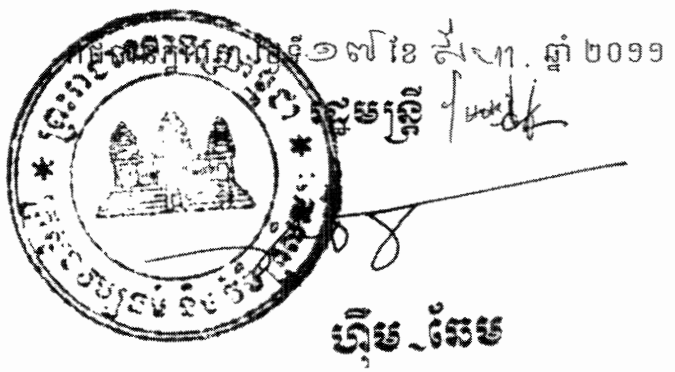 រាជធានីភ្នំពេញ ថ្ងៃទី ១៧ ខែ សីហា ឆ្នាំ ២០១១
រដ្ឋមន្ត្រី
ព្រះរាជាណាចក្រកម្ពុជា
ក្រសួងវប្បធម៌ និង វិចិត្រសិល្បៈ
ហ៊ឹម ឆែម